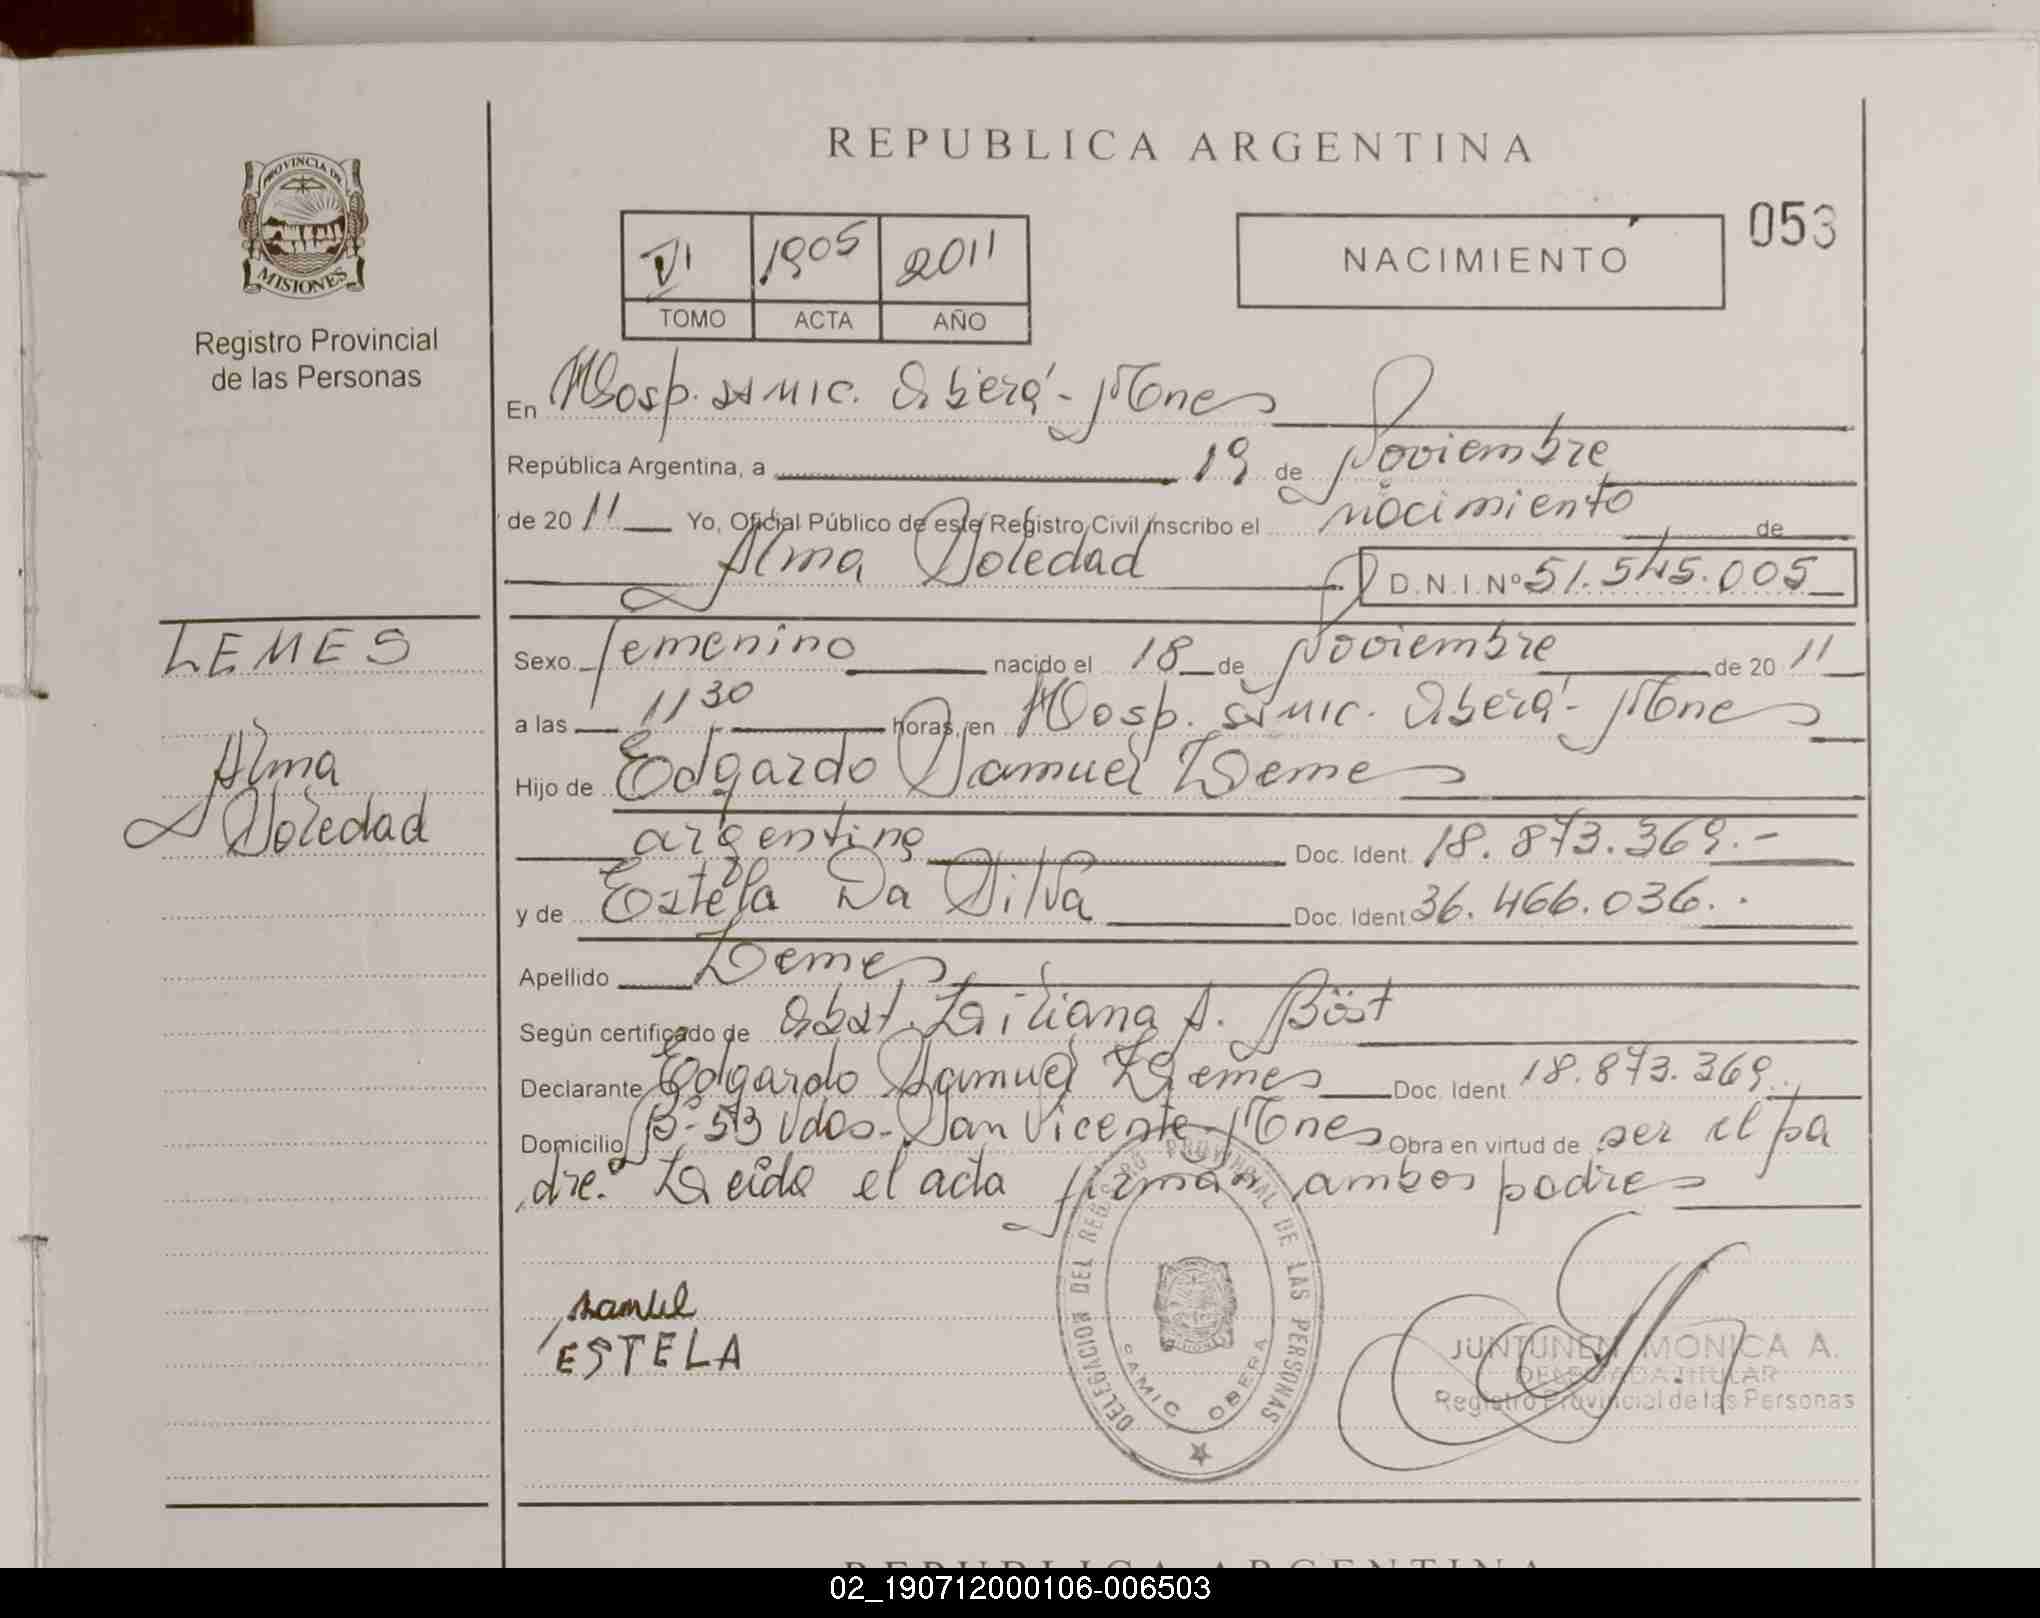 REPUBLICA ARGENTINA
PROVINCIA DE
MISIONES
Registro Provincial
de las Personas
VI 1905 2011
TOMO ACTA AÑO
NACIMIENTO
053
En Hosp. SAMIC. Oberá - Mnes
República Argentina, a 19 de Noviembre
de 2011 Yo, Oficial Público de este Registro Civil inscribo el nacimiento de
Alma Soledad D.N.I.Nº 51.545.005
LEMES
Alma
Soledad
Sexo femenino nacido el 18 de Noviembre de 2011
a las 11 30 horas, en Hosp. SAMIC. Oberá - Mnes
Hijo de Edgardo Samuel Lemes
argentino Doc. Ident. 18.873.369.-
y de Estela Da Silva Doc. Ident. 36.466.036..
Apellido Lemes
Según certificado de Obst. Liliana A. Böst
Declarante Edgardo Samuel Lemes Doc. Ident 18.873.369.
Domicilio Bº 53 Vdas - San Vicente - Mnes Obra en virtud de ser el pa
dre. Leída el acta firman ambos padres
samuel
ESTELA
DELEGACION DEL REGISTRO PROVINCIAL DE LAS PERSONAS
SAMIC OBERA
JUNTUNEN MONICA A.
DELEGADA TITULAR
Registro Provincial de las Personas
REPUBLICA ARGENTINA
02_190712000106-006503